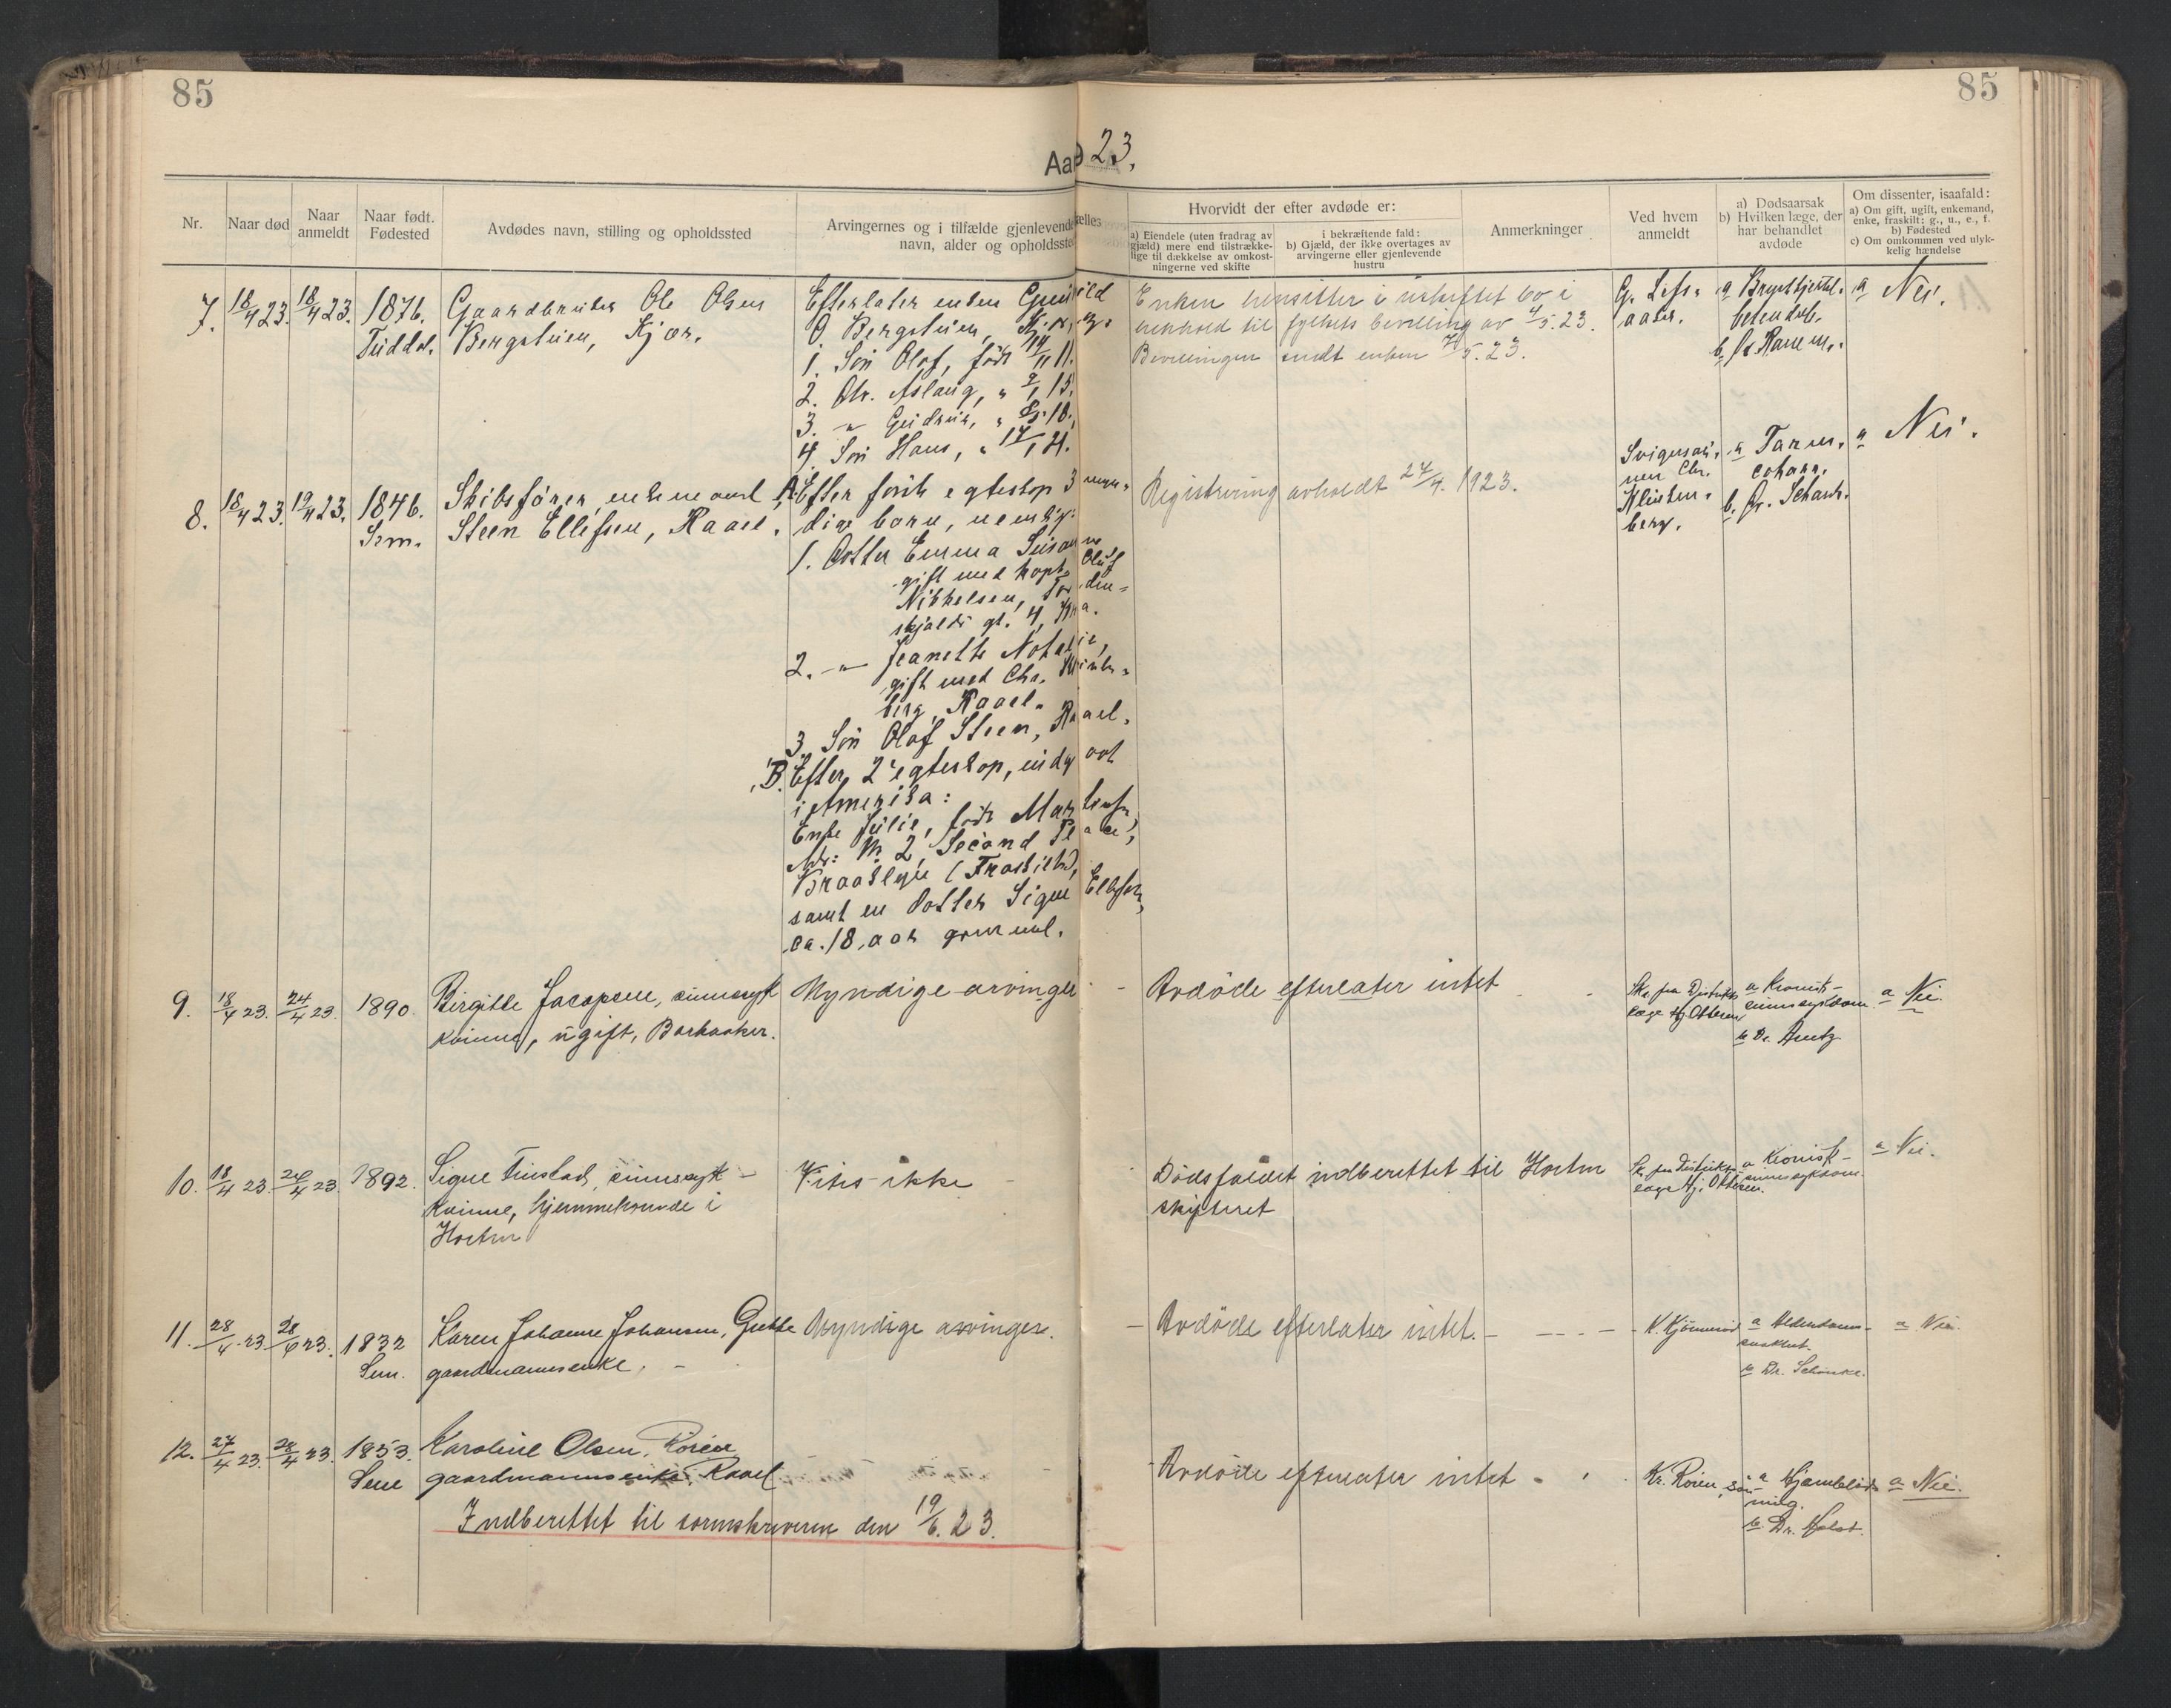 85
85
Aar 23.
Nr.
Naar død
Naar anmeldt
Naar født. Fødested
Avdødes navn, stilling og opholdssted
Arvingernes og i tilfælde gjenlevende
navn, alder og opholdssted
Hvorvidt der efter avdøde er:
a) Eiendele (uten fradrag av
gjæld) mere end tilstrække-
lige til dækkelse av omkost-
ningerne ved skifte
i bekræftende fald:
b) Gjæld, der ikke overtages av
arvingerne eller gjenlevende
hustru
Anmerkninger
Ved hvem
anmeldt
a) Dødsaarsak
b) Hvilken læge, der
har behandlet
avdøde
Om dissenter, isaafald:
a) Om gift, ugift, enkemand,
enke, fraskilt; g., u., e., f.
b) Fødested
c) Om omkommen ved ulyk-
kelig hændelse
7. 18/4 23. 18/4 23. 1876. Gaardbruker Ole Olsen
Tuddal. Bergstuen, Kjær.
Efterlater enken Gunvild
O. Bergstuen, Kjær, og:
1. Søn Olaf, født 14/11 11.
2. Dtr. Aslaug, " 9/1 15.
3. " Gudrun, " 18.
4. Søn Hans, " 17/1 21.
Enken hensitter i uskiftet bo i
henhold til fylkets bevilling av 4/5. 23.
Bevillingen sendt enken 7/5. 23.
a Brysthjertel.
betendelse.
a Nei.
8. 18/4 23. 19/4 23. 1846. Skibsfører, enkemand
Sem. Steen Ellefsen, Raael.
A. Efter første egteskap 3 myn-
dige barn, nemlig:
1. Datter Emma Susanne
gift med kapt. Oluf
Nikkelsen, Torden-
skjolds gt. 4, Kra.
2. " Jeanette Natalie,
gift med Chr. Klinken-
berg, Raael.
3. Søn Olaf Steen, Raael.
B. Efter 2' egteskap, indgaat
i Amerika:
Enke Julie, født Martinsen,
Adr: No 2, Second Place,
Brooklyn (Fraskilt),
samt en datter Signe Ellefsen,
ca. 18 aar gammel.
Registrering avholdt 27/4. 1923.
Svigersøn-
nen Chr.
Klinken-
berg.
a Tarm-
coharr.
b. Dr. Scharb.
a Nei.
9. 18/4 23. 24/4 23. 1890 Birgitte Jacopsen, sinnssyk
kvinne, ugift, Barkaaker.
Myndige arvinger
Avdøde efterlater intet
Sk. fra Distrikts
læge Hj. Ottesen
a Kronisk-
sinnsygdom
a Nei.
10. 18/4 23. 24/4 23. 1892. Signe Finstad, sinnssyk
kvinne, hjemmehørende i
Horten
Vites ikke
Dødsfaldet indberettet til Horten
skifteret
Sk. fra Distrikts
læge Hj. Ottesen.
a Kronisk-
sinnsygdom.
a Nei.
11. 28/4. 23. 28/4 23. 1832 Karen Johanne Johansen,
Sem. gaardmannsenke.
Myndige arvinger.
Avdøde efterlater intet.
a Alderdoms-
svakhet.
a Nei.
12. 27/4 23. 28/4 23. 1853. Karoline Olsen, Roren
Sem gaardmannsenke, Raael
Indberettet til sorenskriveren den 19/6. 23.
Avdøde efterlater intet
Kr. Roren, søn
a Hjerneblød-
ning.
b Dr. Holst.
a Nei.